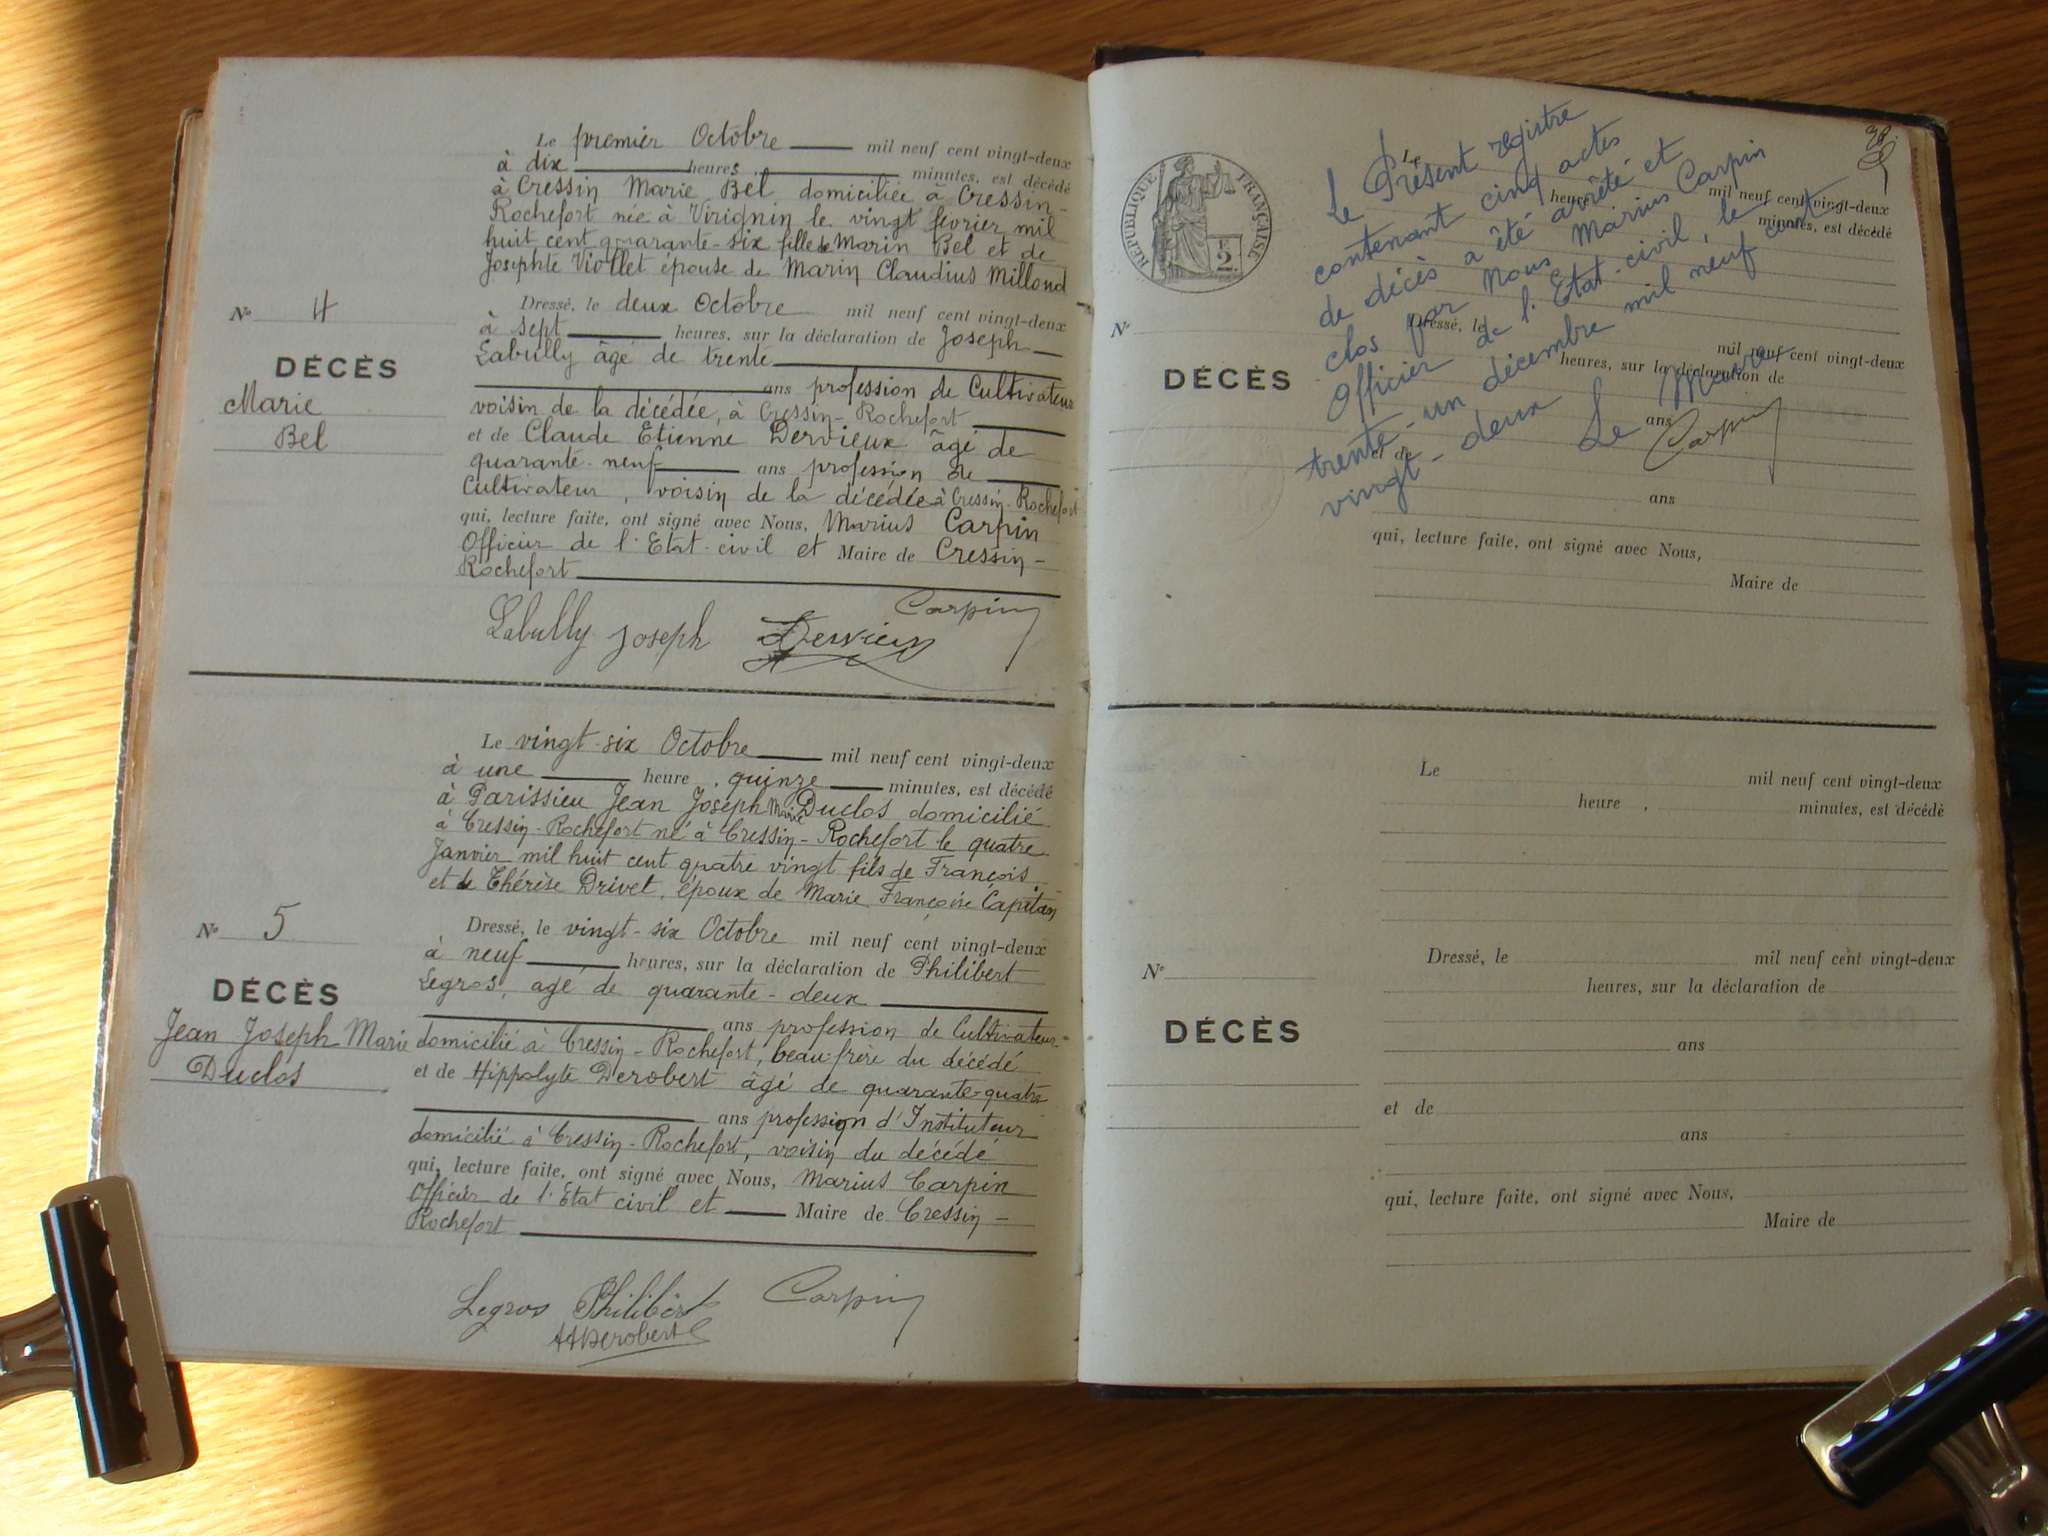 Le premier Octobre mil neuf cent vingt-deux
à dix heures, minutes, est décédé
à Cressin Marie Bel domiciliée à Cressin-
Rochefort née à Virignin le vingt février mil
huit cent quarante-six fille de Marin Bel et de
Josephte Viollet épouse de Marin Claudius Millond
Nº 4
DÉCÈS
Marie
Bel
Dressé, le deux Octobre mil neuf cent vingt-deux
à sept heures, sur la déclaration de Joseph
Labully âgé de trente
ans profession de Cultivateur
voisin de la décédée, à Cressin-Rochefort
et de Claude Etienne Dervieux âgé de
quarante-neuf ans profession de
Cultivateur, voisin de la décédée à Cressin-Rochefort
qui, lecture faite, ont signé avec Nous, Marius Carpin
Officier de l'Etat-civil et Maire de Cressin-
Rochefort
Carpin
Labully Joseph Dervieux
Le vingt-six Octobre mil neuf cent vingt-deux
à une heure, quinze minutes, est décédé
à Parissieu Jean Joseph Marie Duclos domicilié
à Cressin-Rochefort né à Cressin-Rochefort le quatre
Janvier mil huit cent quatre vingt fils de François
et de Thérèse Drivet, époux de Marie Françoise Capitan
Nº 5
DÉCÈS
Jean Joseph Marie
Duclos
Dressé, le vingt-six Octobre mil neuf cent vingt-deux
à neuf heures, sur la déclaration de Philibert
Legros, agé de quarante-deux
ans profession de Cultivateur
domicilié à Cressin-Rochefort, beau-frère du décédé
et de Hippolyte Derobert âgé de quarante-quatre
ans profession d'Instituteur
domicilié à Cressin-Rochefort, voisin du décédé
qui, lecture faite, ont signé avec Nous, Marius Carpin
Officier de l'Etat civil et Maire de Cressin-
Rochefort
Legros Philibert Carpin
HDerobert
RÉPUBLIQUE FRANÇAISE
2
Le Présent registre
contenant cinq actes
de décès a été arrêté et
clos par Nous Marius Carpin
Officier de l'Etat-civil, le
trente-un décembre mil neuf cent
vingt-deux Le Maire
Carpin
Le mil neuf cent vingt-deux
heures minutes, est décédé
Nº
DÉCÈS
Dressé, le mil neuf cent vingt-deux
heures, sur la déclaration de
ans
et de
ans
qui, lecture faite, ont signé avec Nous,
Maire de
Le mil neuf cent vingt-deux
heure, minutes, est décédé
Nº
DÉCÈS
Dressé, le mil neuf cent vingt-deux
heures, sur la déclaration de
ans
et de
ans
qui, lecture faite, ont signé avec Nous,
Maire de